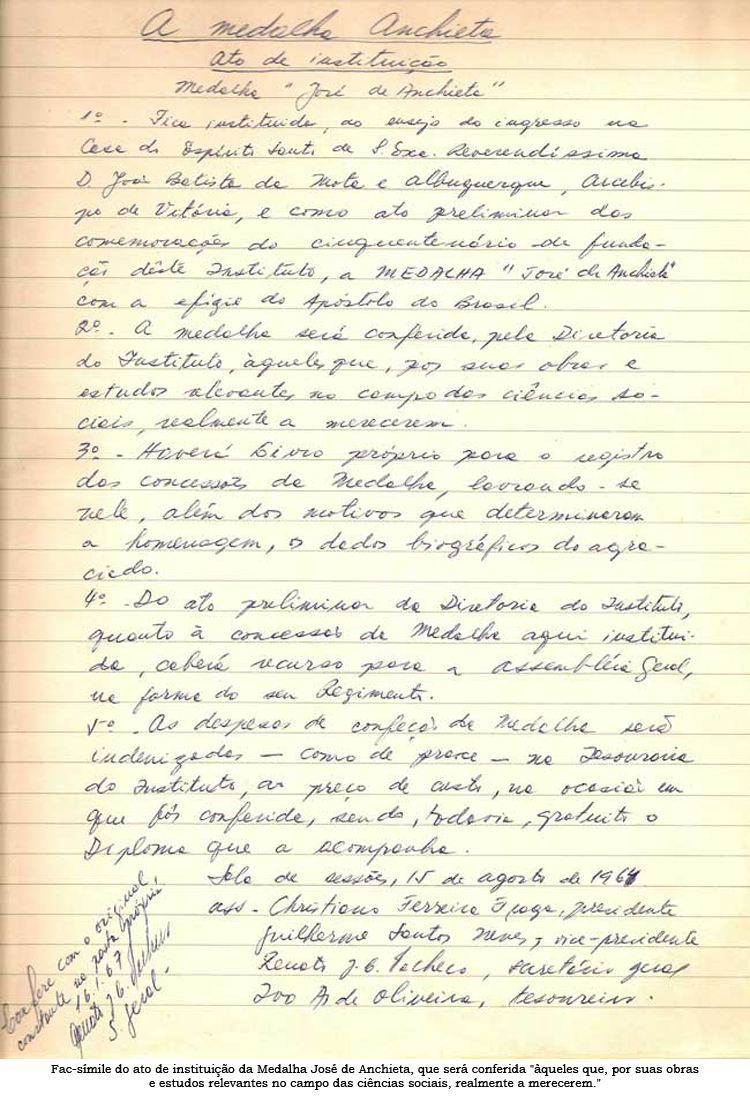 A medalha Anchieta
Ato de instituição
Medalha "José de Anchieta"
1º - Fica instituida, ao ensejo do ingresso na
Casa do Espírito Santo de S. Exa. Reverendíssima
D. João Batista da Mota e Albuquerque, Arcebis-
po de Vitória, e como ato preliminar das
comemorações do cinquentenário de funda-
ção dêste Instituto, a MEDALHA "José de Anchieta"
com a efígie do Apóstolo do Brasil.
2º - A medalha será conferida, pela Diretoria
do Instituto, àqueles que, por suas obras e
estudos relevantes no campo das ciências so-
ciais, realmente a merecerem.
3º - Haverá Livro próprio para o registro
das concessões da Medalha, lavrando-se
nele, além dos motivos que determinaram
a homenagem, os dados biográficos do agra-
ciado.
4º - Do ato preliminar da Diretoria do Instituto,
quanto à concessão da Medalha aqui institui-
da, caberá recurso para a Assembléia Geral,
na forma do seu Regimento.
5º - As despesas de confecção da Medalha será
indenizadas - como de praxe - na Tesouraria
do Instituto, ao preço de custo, na ocasião em
que fôr conferida, sendo, todavia, gratuito o
Diploma que a acompanha.
Sala de sessões, 15 de agosto de 196
ass - Christiano Ferreira Fraga, presidente
Guilherme Santos Neves, vice-presidente
Renato J. C. Pacheco, secretário geral
de Oliveira, tesoureiro.
Confere com o original
constante na pasta própria
16.1.67
Renato J. C. Pacheco
S. Geral -
Fac-símile do ato de instituição da Medalha José de Anchieta, que será conferida "àqueles que, por suas obras
e estudos relevantes no campo das ciências sociais, realmente a merecerem."